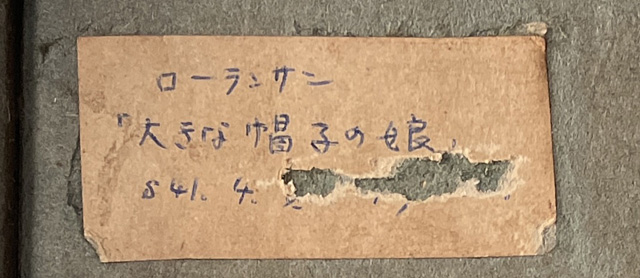 ローランサン
「大きな帽子の娘」
S41. 4.